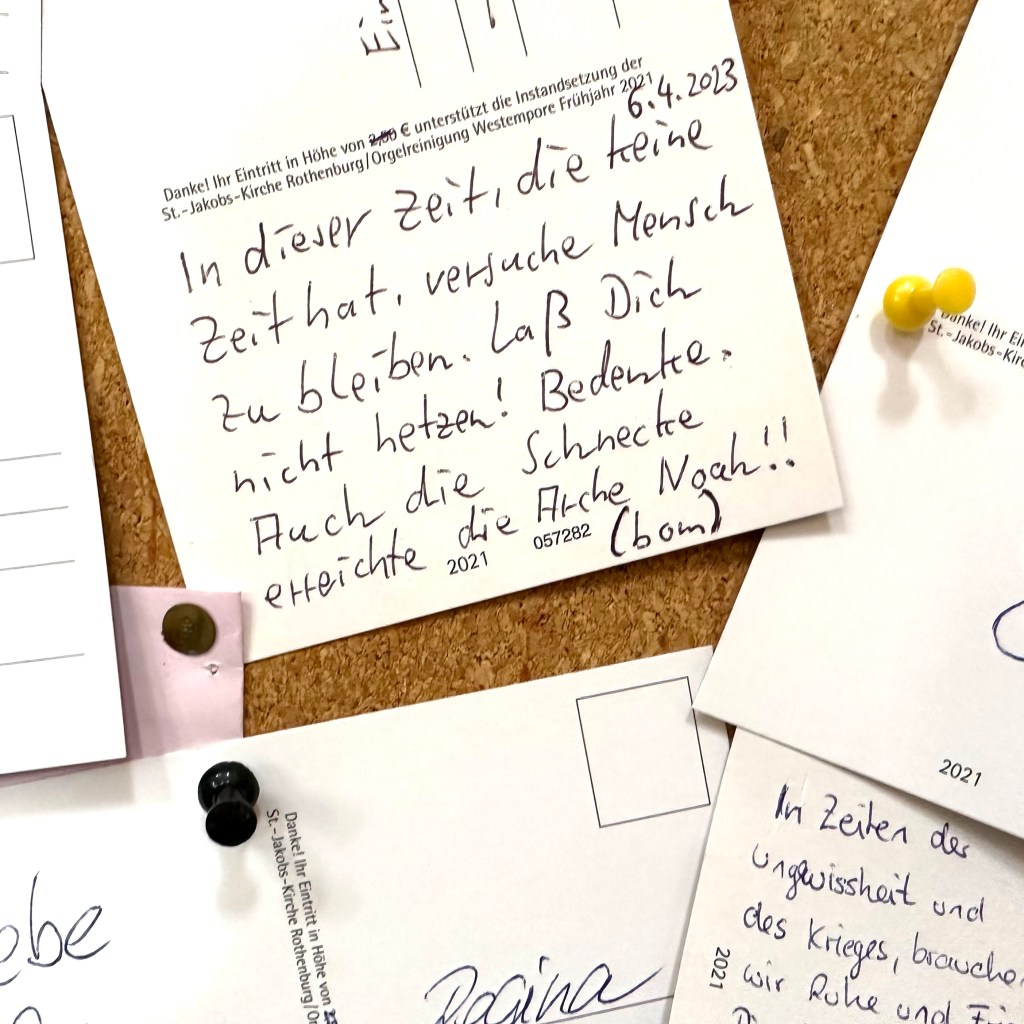 Danke! Ihr Eintritt in Höhe von 2,00 € unterstützt die Instandsetzung der
St.-Jakobs-Kirche Rothenburg/Orgelreinigung Westempore Frühjahr 2021
6.4.2023
In dieser Zeit, die keine
Zeit hat, versuche Mensch
zu bleiben. Laß Dich
nicht hetzen! Bedenke.
Auch die Schnecke
erreichte die Arche Noah!!
2021
057282
(bom)
Danke! Ihr Ein
St.-Jakobs-Kirc
2021
Danke! Ihr Eintritt in Höhe von
St.-Jakobs-Kirche Rothenburg/Or
ebe
Regina
In Zeiten des
Ungwissheit und
des Krieges, brauche
wir Ruhe und
2021